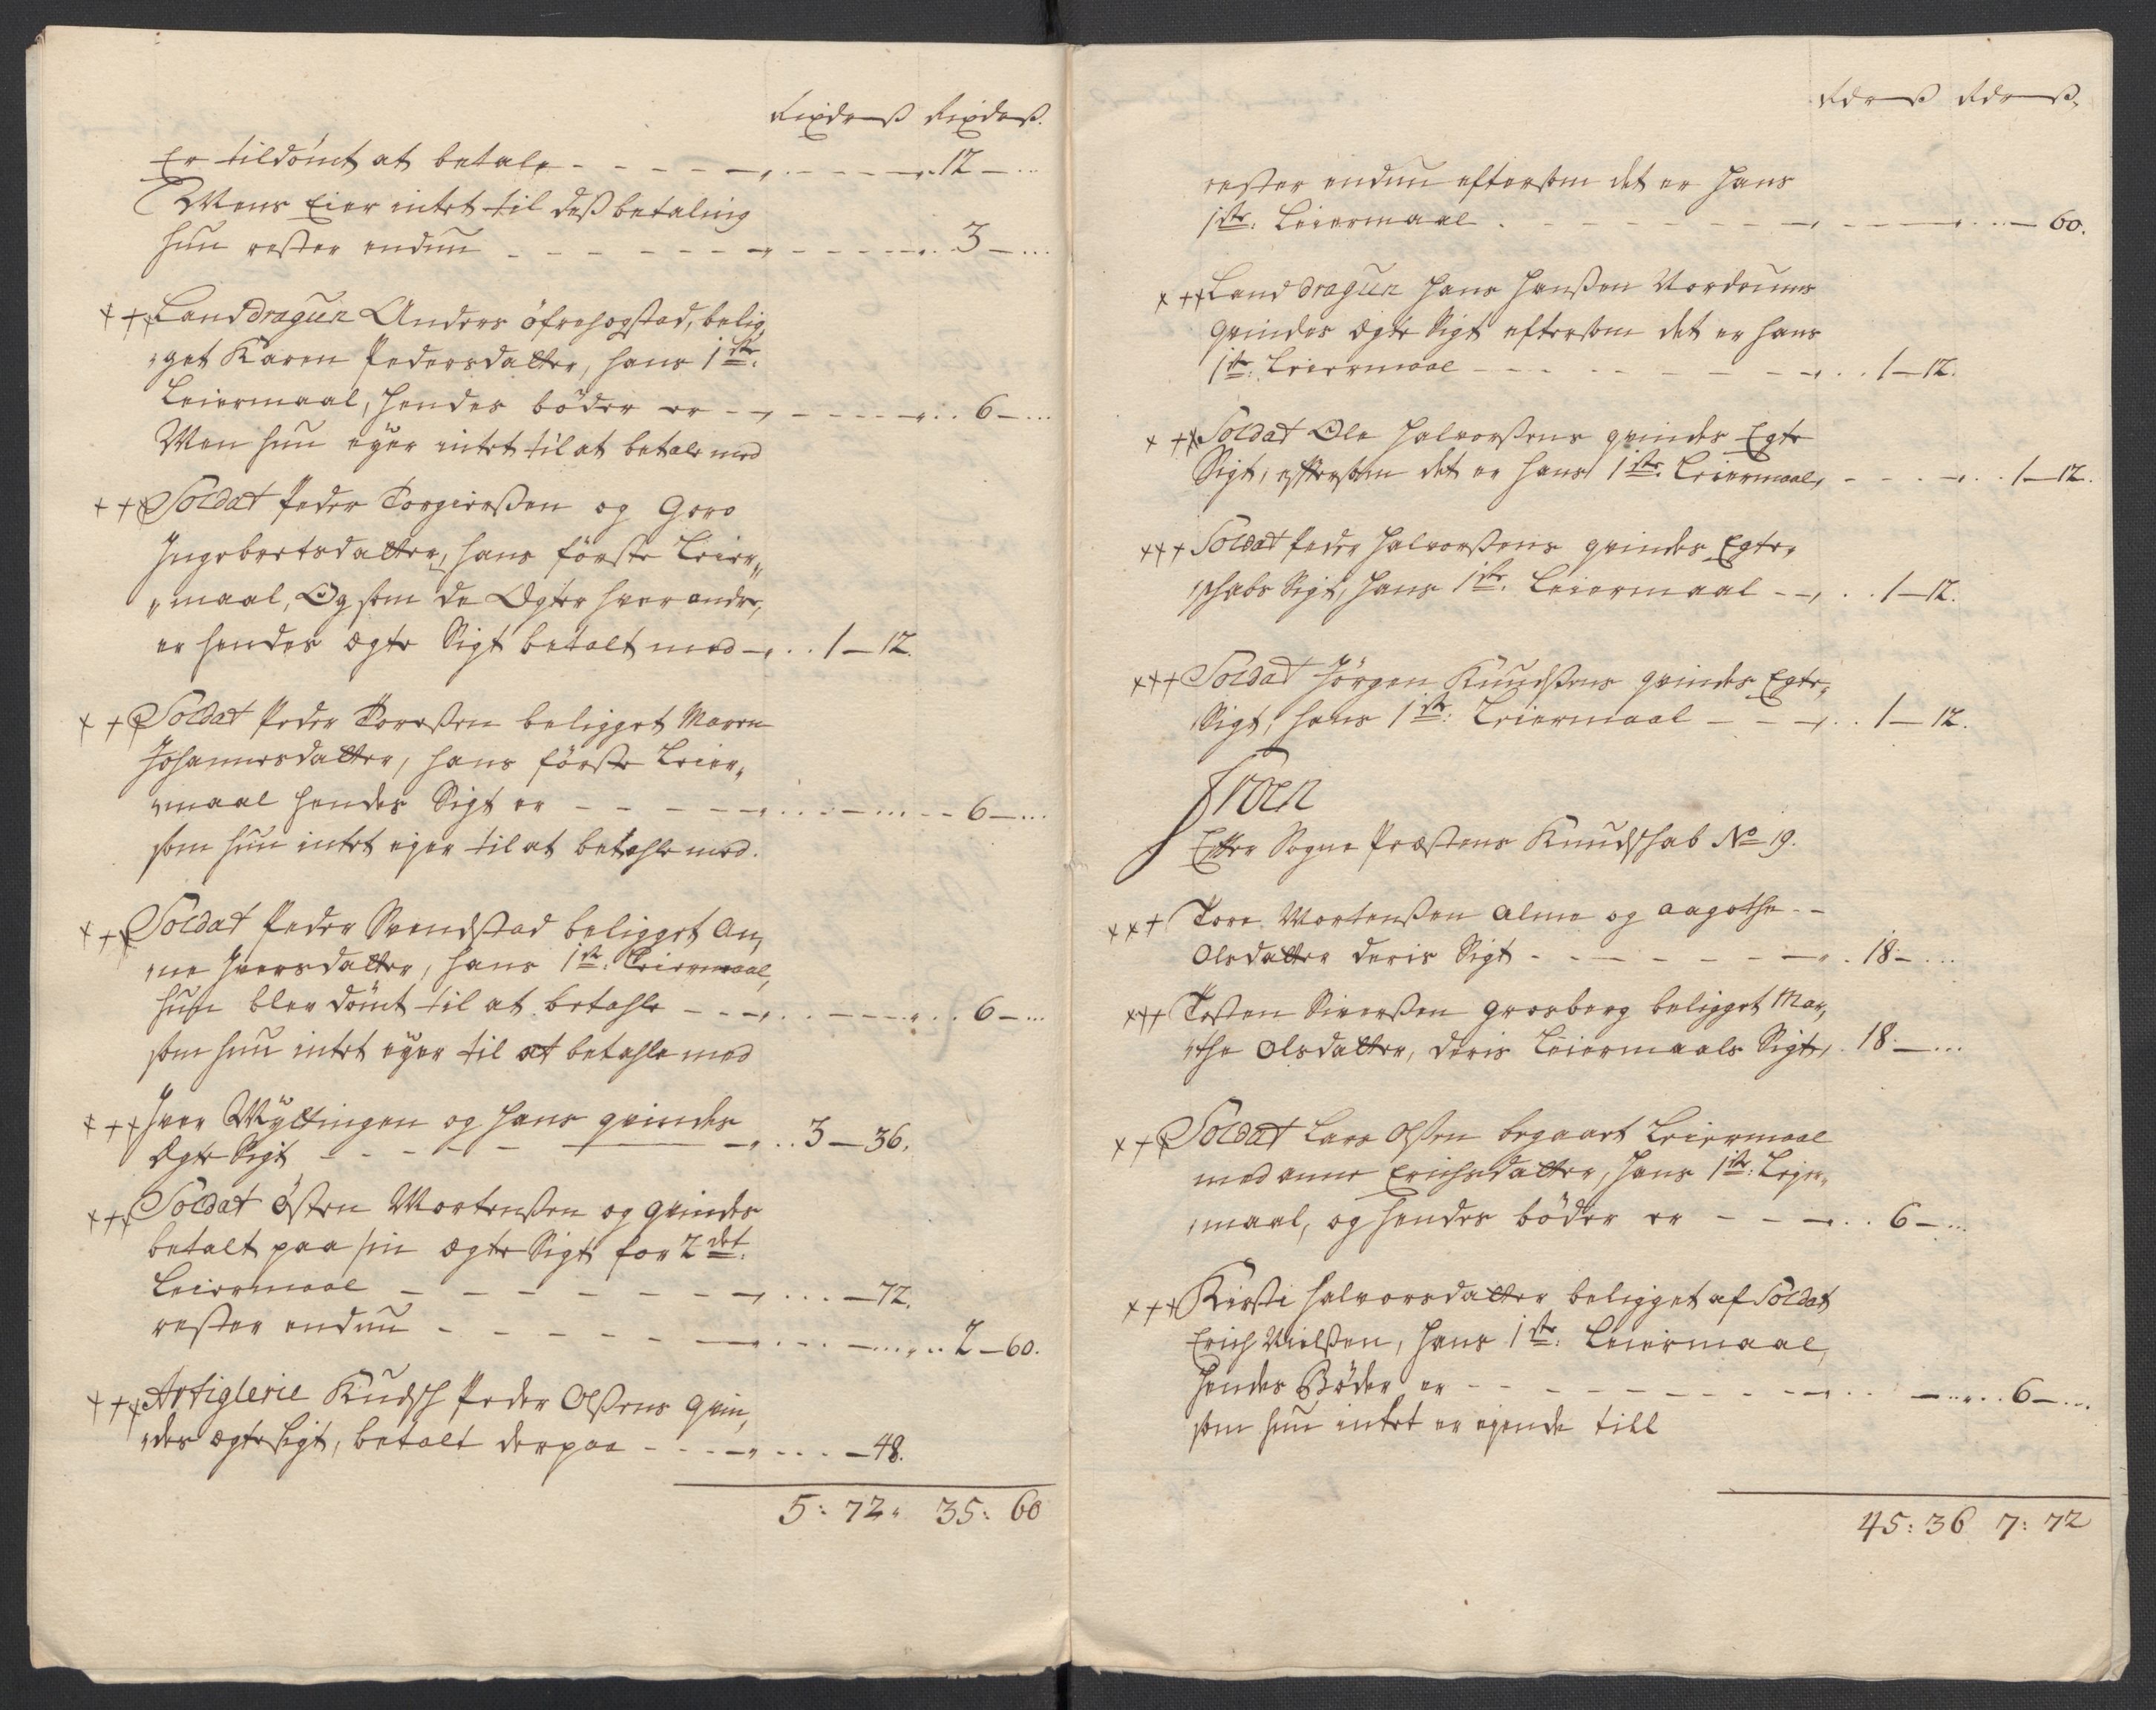 Rixdr ß Rixdr ß.
Er tildömt at betale - - - - - 12 - ...
Mens Eier intet til deß betaling
hun rester endnu - - - - - - 3 - ...
+++ Landdragun Anders öfrehogstad, belig,
"get Karen Pedersdatter, hans 1ste:
Leiermaal, hendes böder er - - - - - 6 - ...
Men hun eÿer intet til at betale med
+++ Soldat Peder Torgierßen og Goro
Ingebretsdatter, hans förste Leier,,
"maal, Og som de Ægter hver andre,
er hendes ægte Sigt betalt med - .. 1 - 12.
+++ Soldat Peder Toreßen beligget Maren
Johannesdatter, hans förste Leier,,
"maal hendes Sigt er - - - - - 6 - ...
som hun intet eger til at betahle med.
+++ Soldat Peder Svendstad beligget An,
"ne Iversdatter, hans 1ste: Leiermaal,
hun blev dömt til at betahle - - - - 6 - ...
som hun intet eÿer til at betahle med
+++ Iver Mÿttingen og hans qvindes
Ægte Sigt - - - - - 3 - 36.
+++ Soldat Östen Mortenßen og qvindes
betalt paa sin ægte Sigt for 2det:
Leiermaal - - - - - - - ... - 72.
rester endnu - - - - - - - 2 - 60.
+++ Artiglerie Kudsk Peder Olßens qvin,
"des ægte sigt, betalt derpaa - - - - ... - 48.
5: 72. 35: 60
Rdr ß Rdr ß.
rester endnu eftersom det er hans
1ste: Leiermaal . - - - - - - - 60.
+++ Land dragun Hans Hanßen Nordrums
qvindes ægte Sigt eftersom det er hans
1ste: Leiermaal - - - - - - .. 1 - 12.
+++ Soldat Ole Halvorßens qvindes Egte
Sigt, eftersom det er hans 1ste: Leiermaal, - - - - .. 1 - 12.
+++ Soldat Peder Halvorßens qvindes Egte,
"schabs Sigt, hans 1ste: Leiermaal - - .. 1 - 12.
+++ Soldat Jörgen Knudßens qvindes Egte,
Sigt, hans 1ste: Leiermaal - - - .. 1 - 12.
Froen
Efter Sogne Præstens Kundschab No 19.
+++ Tore Mortenßen Alme og Aagothe - -
Olsdatter deris Sigt - - - - - - . 18 - ...
+++ Tosten Siverßen Grosberg beligget Mar,
"the Olsdatter, deris Leiermaals Sigt, . 18 - ...
+++ Soldat Lars Olßen begaaet Leiermaal
med Anne Erichsdatter, hans 1ste: Leÿer,
"maal, og hendes böder er - - - .. 6 - ...
+++ Kirsti Halvorsdatter beligget af Soldat
Erich Nielßen, hans 1ste: Leiermaal,
hendes Böder er - - - - - - - - - 6 - ...
som hun intet er ejende till
45: 36 7: 72